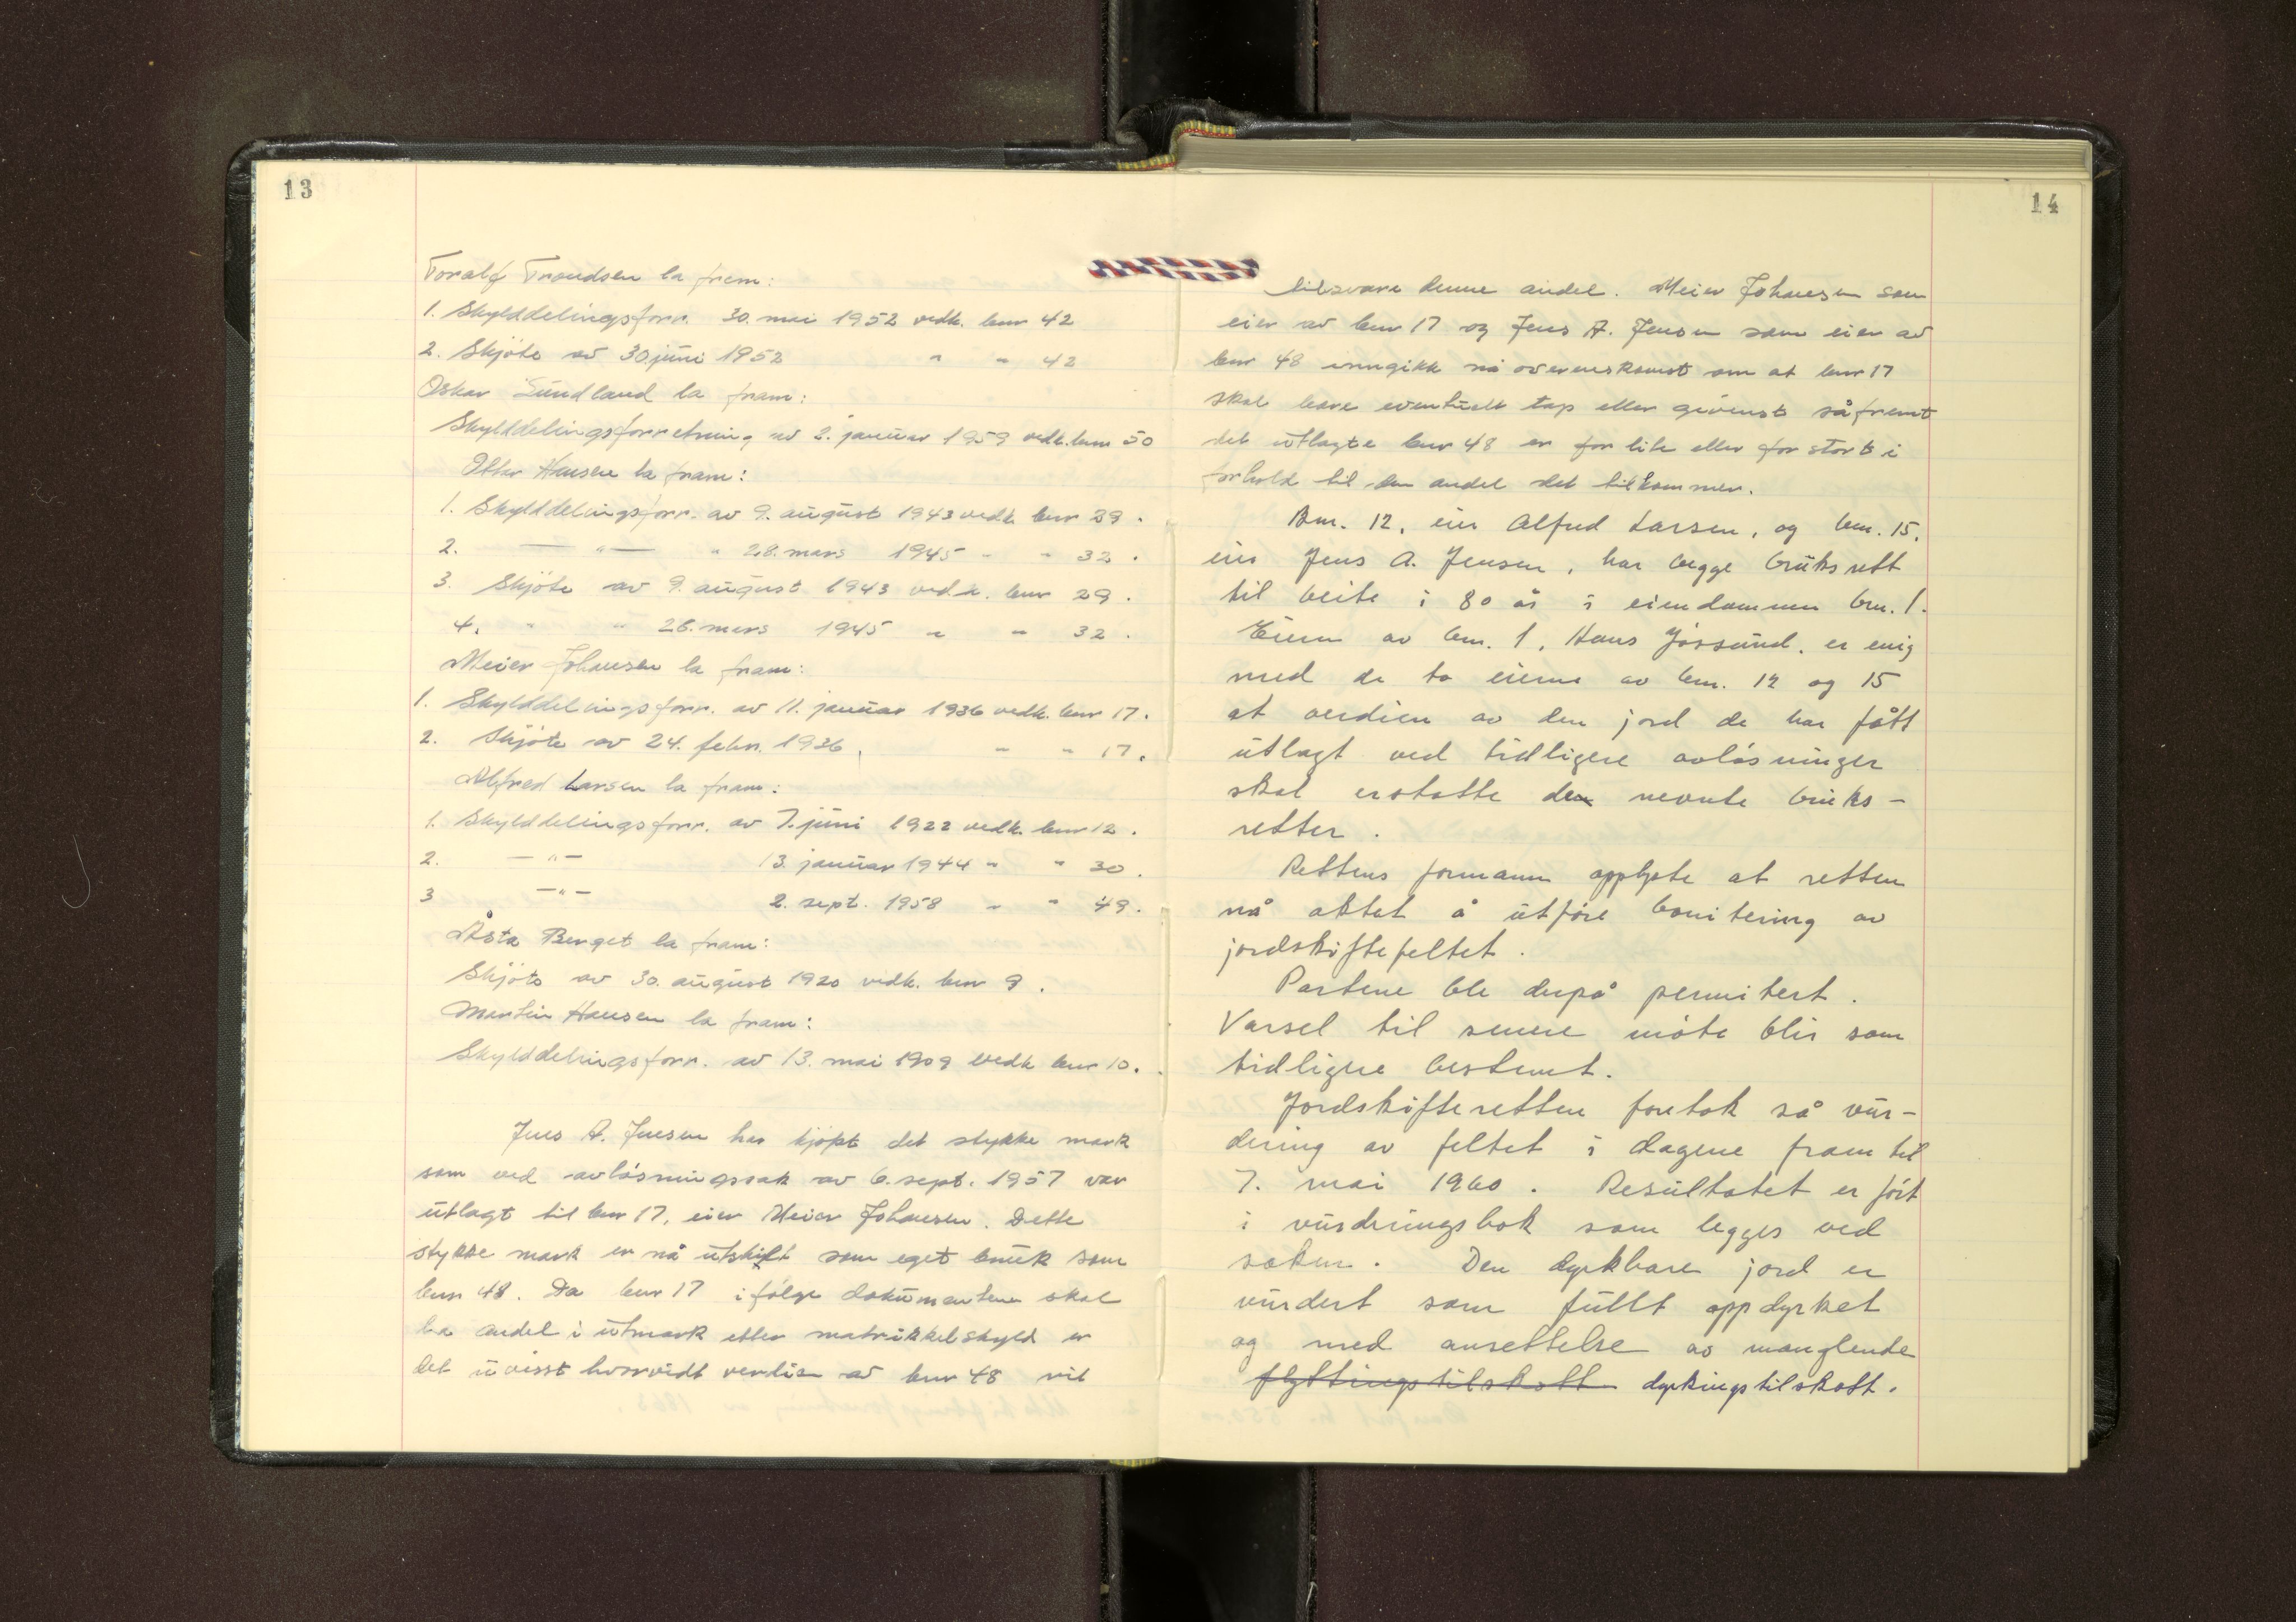 13
Toralf Trondsen la frem:
1. Skylddelingsforr. 30. mai 1952 vedk. bnr 42
2. Skjöte av 30 juni 1952 " " 42
Oskar Sundland la fram:
Skylddelingsforretning av 2. januar 1959 vedk. bnr 50
Ottar Hansen la fram:
1. Skylddelingsforr. av 9. august 1943 vedk bnr 29.
2. — " — " 28. mars 1945 " " 32.
3. Skjöte av 9. august 1943 vedk. bnr 29.
4. " " 28. mars 1945 " " 32.
Meier Johansen la fram:
1. Skylddelingsforr. av 11. januar 1936 vedk. bnr 17.
2. Skjöte av 24. febr. 1936, " " 17.
Alfred Larsen la fram:
1. Skylddelingsforr. av 7. juni 1922 vedk. bnr 12.
2. — " — 13. januar 1944 " " 30.
3 — " — 2. sept. 1958 " " 49.
Åsta Berget la fram:
Skjöte av 30. august 1920 vedk. bnr 9.
Martin Hansen la fram:
Skylddelingsforr. av 13. mai 1909 vedk bnr 10.
Jens A. Jensen har kjöpt det stykke mark
som ved avlösningssak av 6. sept. 1957 var
utlagt til bnr 17, eier Meier Johansen. Dette
stykke mark er nå utskilt som eget bruk som
bnr 48. Da bnr 17 ifölge dokumentene skal
ha andel i utmark etter matrikkelskyld er
det uvisst hvorvidt verdien av bnr 48 vil
14
tilsvare denne andel. Meier Johansen som
eier av bnr 17 og Jens A. Jensen som eier av
bnr 48 inngikk nå overenskomst om at bnr 17
skal bære eventuelt tap eller gevinst såfremt
det utlagte bnr 48 er for lite eller for stort i
forhold til den andel det tilkommer.
Bnr. 12, eier Alfred Larsen, og bnr. 15,
eier Jens A. Jensen, har begge bruksrett
til beite i 80 år i eiendommen bnr. 1.
Eieren av bnr. 1, Hans Jössund, er enig
med de to eierne av bnr. 12 og 15
at verdien av den jord de har fått
utlagt ved tidligere avlösninger
skal erstatte de nevnte bruks-
retter.
Rettens formann opplyste at retten
nå aktet å utföre bonitering av
jordskiftefeltet.
Partene ble derpå permitert.
Varsel til senere möte blir som
tidligere bestemt.
Jordskifteretten foretok så vur-
dering av feltet i dagene fram til
7. mai 1960. Resultatet er fört
i vurderingsbok som legges ved
saken. Den dyrkbare jord er
vurdert som fullt oppdyrket
og med ansettelse av manglende
flyttingstilskott dyrkingstilskott.